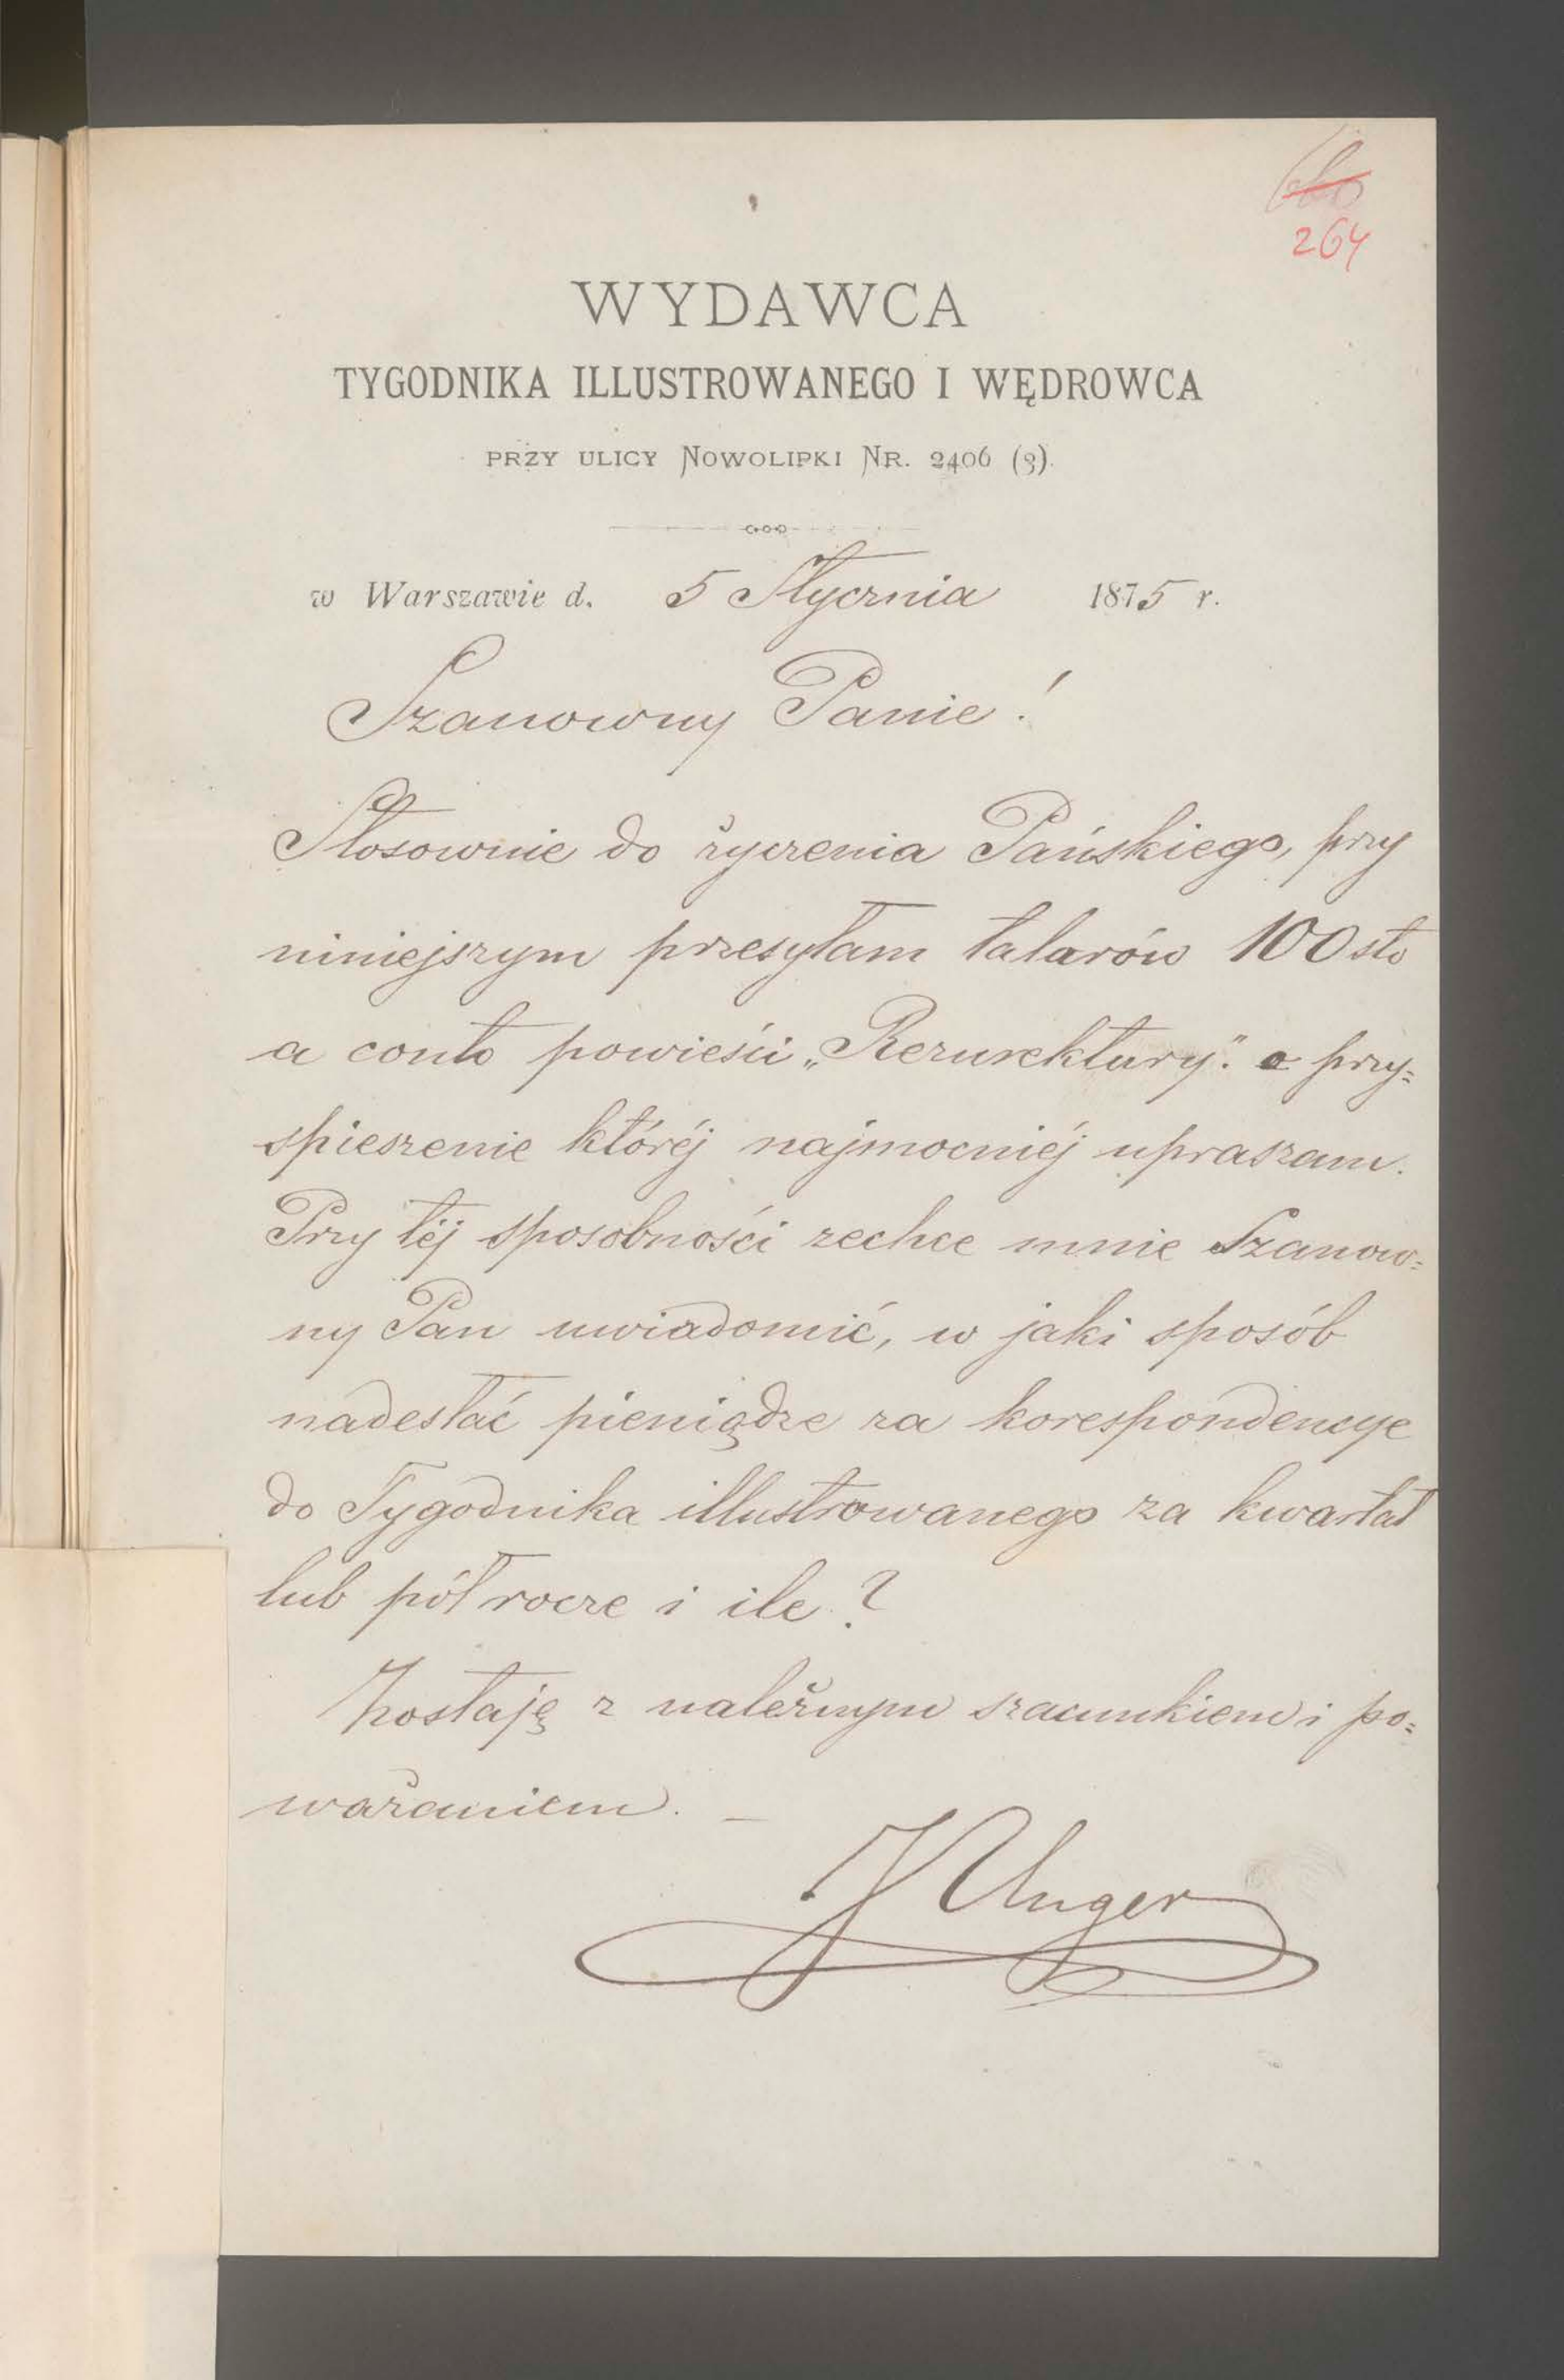 264
WYDAWCA
TYGODNIKA ILLUSTROWANEGO I WĘDROWCA
PRZY ULICY NOWOLIPKI NR. 2406 (3).
w Warszawie d. 5 Stycznia 1875 r.
Szanowny Panie!
Stosownie do życzenia Pańskiego, przy
niniejszym przesyłam talarów 100 sto
a conto powieści „Rezurektury". o przy=
spieszenie któréj najmocniéj upraszam.
Przy téj sposobności zechce mnie Szanow=
ny Pan uwiadomić, w jaki sposób
nadesłać pieniądze za korespondencye
do Tygodnika illustrowanego za kwartał
lub półrocze i ile?
Zostaję z należnym szacunkiem i po=
ważaniem. —
J Unger